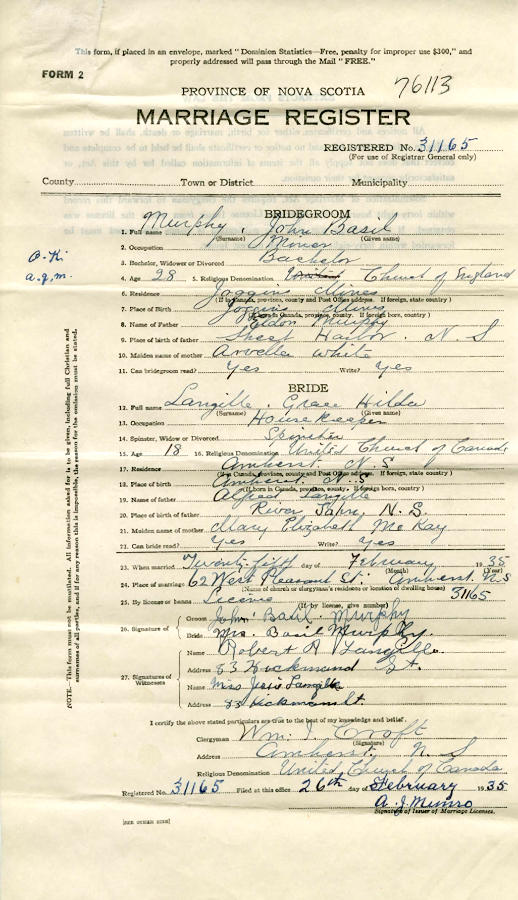 This form, if placed in an envelope, marked "Dominion Statistics—Free, penalty for improper use $300," and
properly addressed will pass through the Mail "FREE."
FORM 2
76113
PROVINCE OF NOVA SCOTIA
MARRIAGE REGISTER
REGISTERED No. 31165
(For use of Registrar General only)
County Town or District Municipality
BRIDEGROOM
1. Full name Murphy, John Basil
(Surname) (Given name)
2. Occupation Miner
3. Bachelor, Widower or Divorced Bachelor
O.K.
a.j.m.
4. Age 28 5. Religious Denomination Church of England
6. Residence Joggins Mines
(If in Canada, province, county and Post Office address. If foreign, state country)
7. Place of Birth Joggins Mines
(If in Canada, province, county. If foreign born, country)
8. Name of Father Eldon Murphy
9. Place of birth of father Sheet Harbor, N. S
10. Maiden name of mother Arvella White
11. Can bridegroom read? Yes Write? Yes
BRIDE
12. Full name Langille, Grace Hilda
(Surname) (Given name)
13. Occupation Housekeeper
14. Spinster, Widow or Divorced Spinster
15. Age 18 16. Religious Denomination United Church of Canada
17. Residence Amherst N.S
(If in Canada, province, county and Post Office address. If foreign, state country)
18. Place of birth Amherst N.S
(If born in Canada, province, county. If foreign born, country)
19. Name of father Alfred Langille
20. Place of birth of father River John, N.S.
21. Maiden name of mother Mary Elizabeth McKay
22. Can bride read? Yes Write? Yes
23. When married Twenty-fifth day of February 1935
(Month) (Year)
24. Place of marriage 62 West Pleasant St. Amherst N.S
(Name of church or clergyman's residence or location of dwelling house)
25. By license or banns License 31165
(If by license, give number)
26. Signature of
Groom John Basil Murphy
Bride Mrs. Basil Murphy.
27. Signatures of Witnesses
Name Robert A Langille
Address 83 Hickmand St.
Name Miss Jesie Langille
Address 83 Hickman St.
I certify the above stated particulars are true to the best of my knowledge and belief.
Clergyman Wm. I. Croft
(Signature)
Address Amherst N S
Religious Denomination United Church of Canada
Registered No. 31165 Filed at this office 26th day of February 1935
A. J. Munro
Signature of Issuer of Marriage Licenses.
[SEE OTHER SIDE]
NOTE—This form must not be mutilated. All information asked for is to be given, including full Christian and
surnames of all parties, and if for any reason this is impossible, the reason for the omission must be stated.